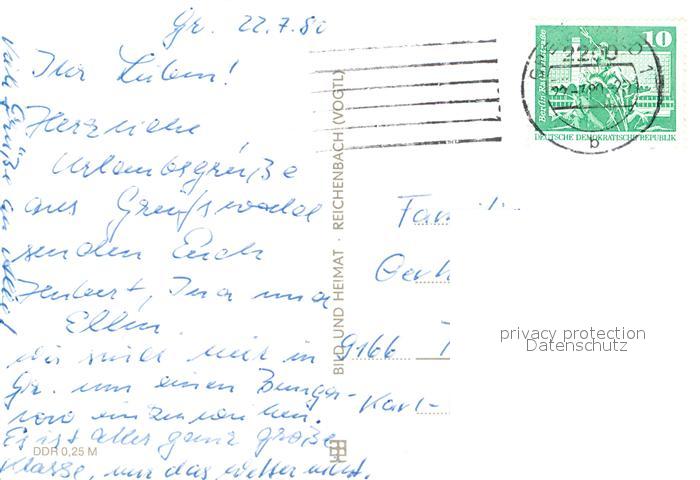 Gr. 22.7.80
Ihr Lieben!
Herzliche
Urlaubsgrüße
aus Greifswald
senden Euch
Ina und
Ellen.
wir sind mit in
Gr. um einen Bunga-
low
Es ist alles ganz große
Klasse, nur das Wetter nicht.
Viele Grüße an
DDR 0,25 M
BILD UND HEIMAT · REICHENBACH (VOGTL)
Fam
Gerh
9166
Karl-
10
Berlin
DEUTSCHE DEMOKRATISCHE REPUBLIK
2200
b
privacy protection
Datenschutz